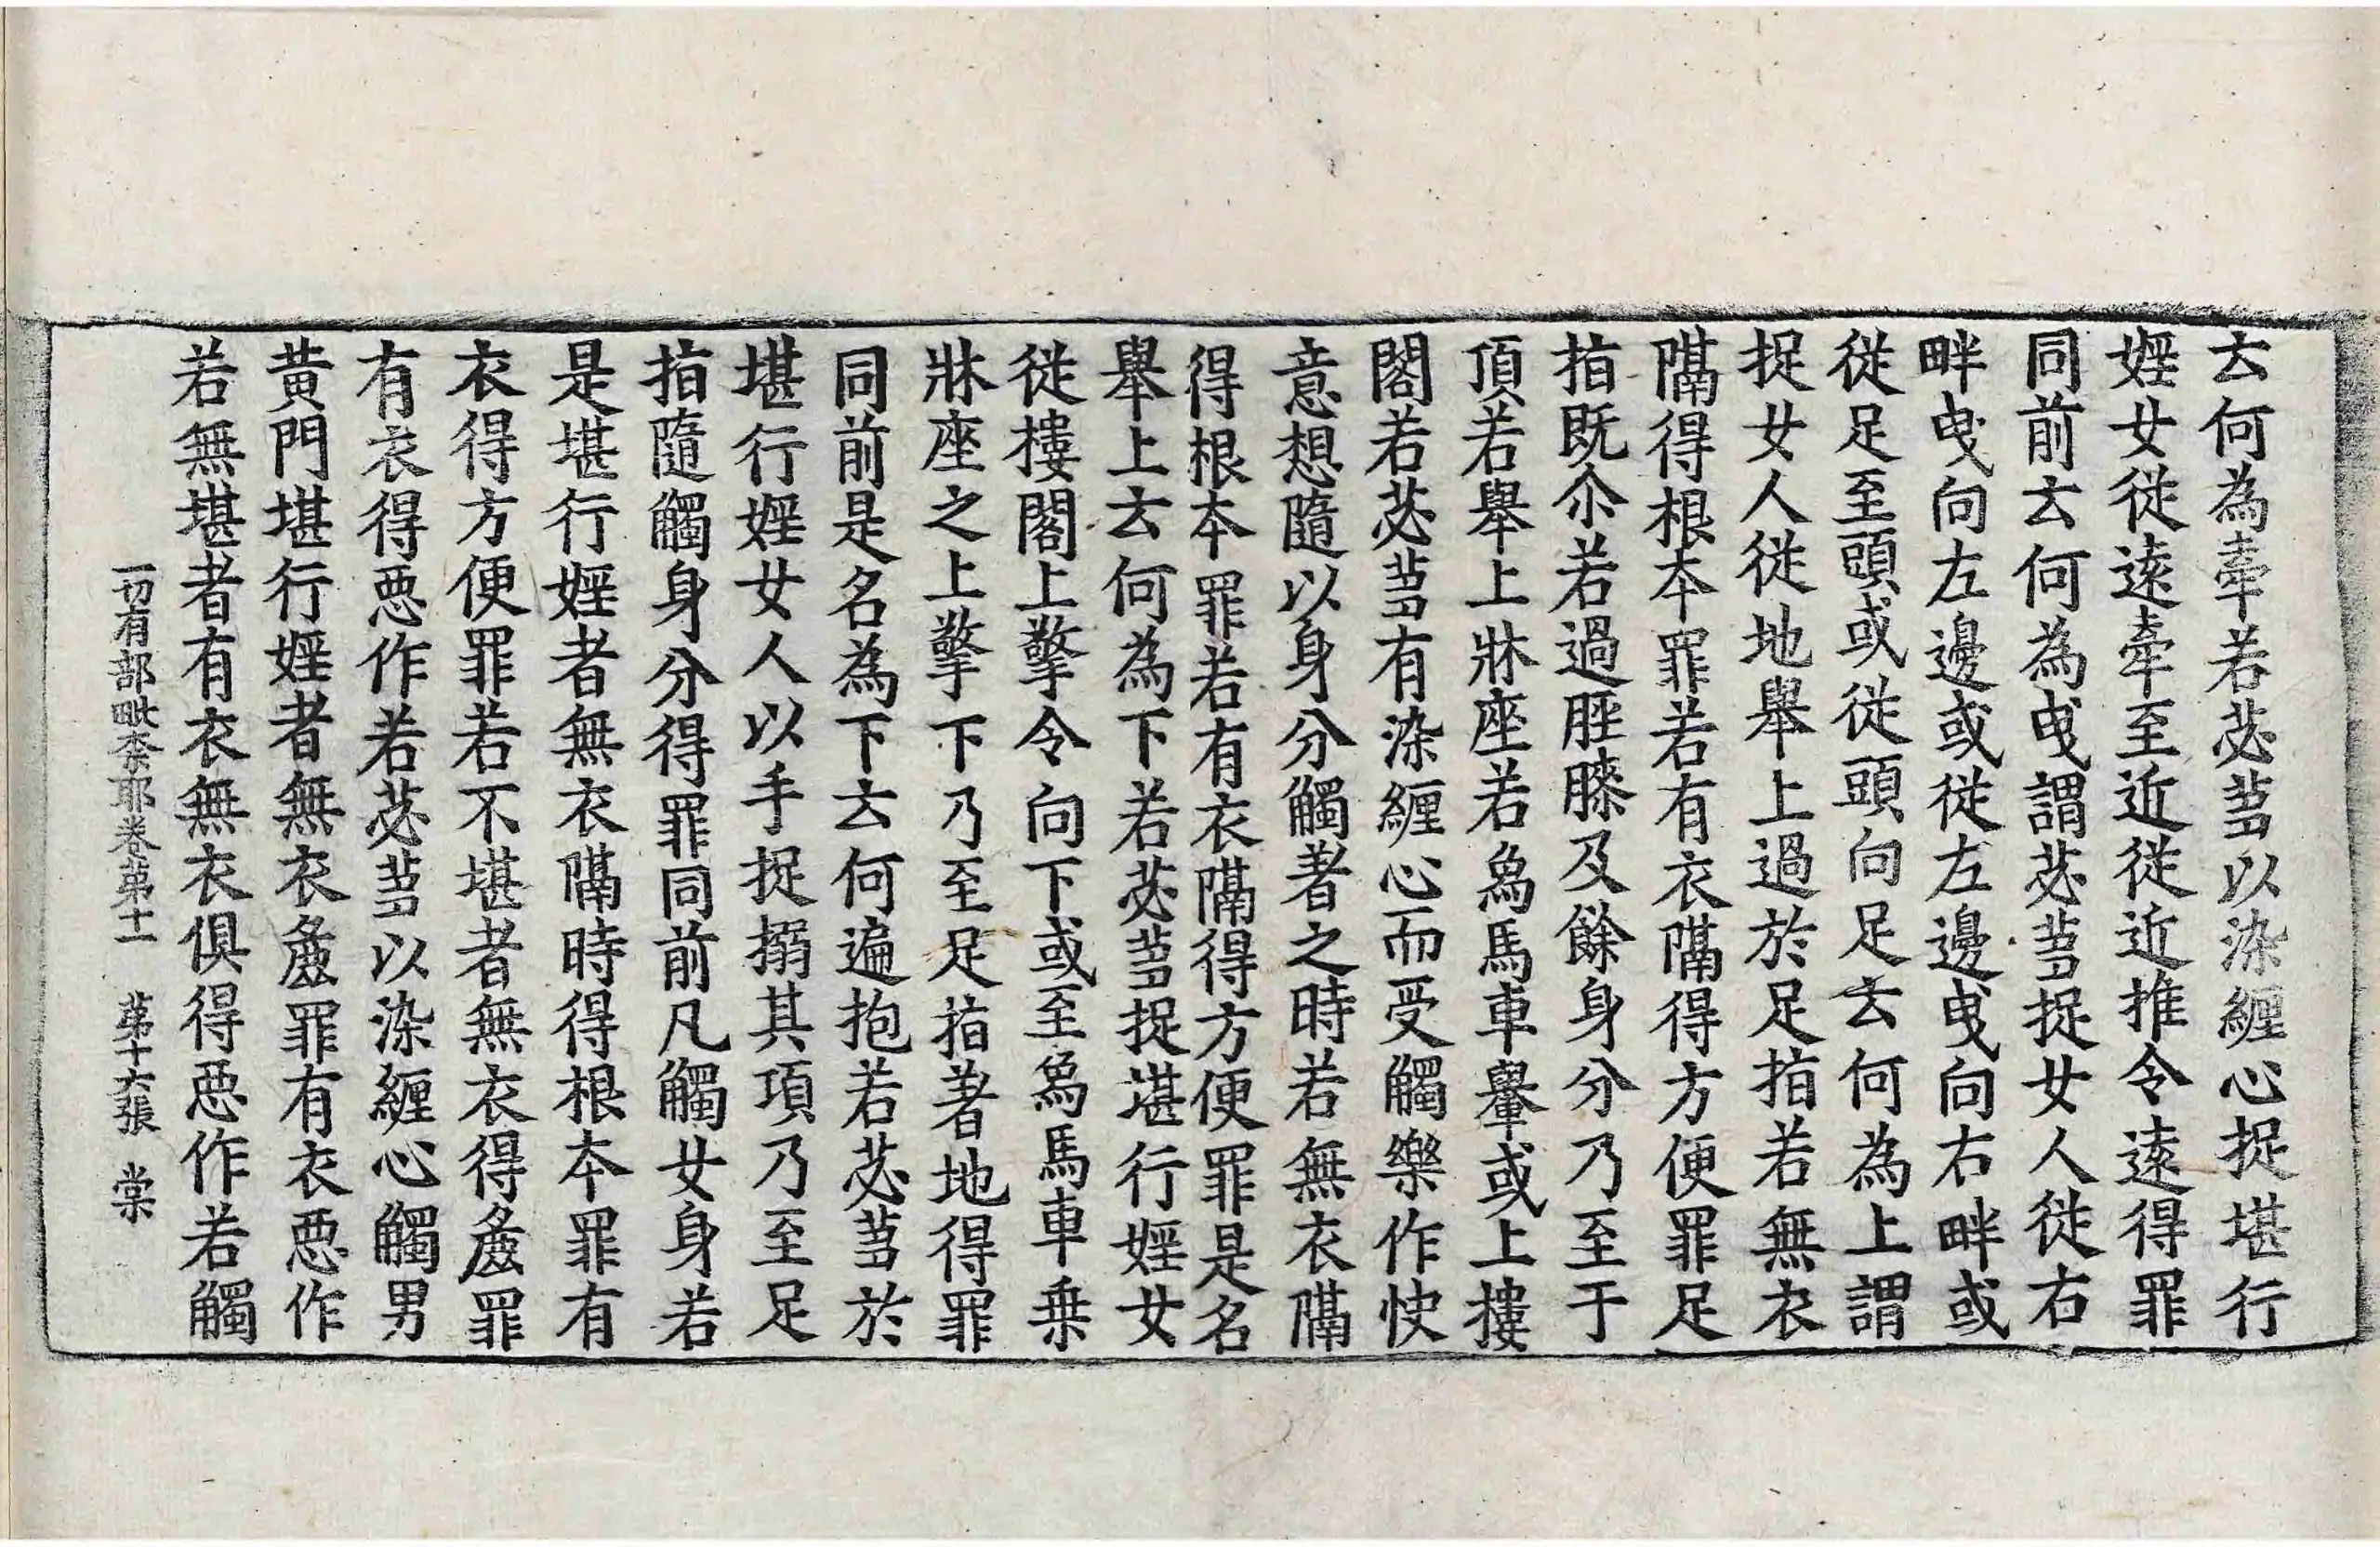 去何為牽若苾蒭以染纏心捉堪行
婬女從遠牽至近從近推令遠得罪
同前去何為曳謂苾蒭捉女人從右
畔曳向左邊或從左邊曳向右畔或
從足至頭或從頭向足去何為上謂
捉女人從地舉上過於足指若無衣
隔得根本罪若有衣隔得方便罪足
指既尒若過脛膝及餘身分乃至于
頂若舉上牀座若象馬車轝或上樓
閣若苾蒭有染纏心而受觸樂作快
意想隨以身分觸著之時若無衣隔
得根本罪若有衣隔得方便罪是名
舉上去何為下若苾蒭捉堪行婬女
從樓閣上擎令向下或至象馬車乗
牀座之上擎下乃至足指著地得罪
同前是名為下去何遍抱若苾蒭於
堪行婬女人以手捉搦其項乃至足
指隨觸身分得罪同前凡觸女身若
是堪行婬者無衣隔時得根本罪有
衣得方便罪若不堪者無衣得麁罪
有衣得惡作若苾蒭以染纏心觸男
黃門堪行婬者無衣麁罪有衣惡作
若無堪者有衣無衣俱得惡作若觸
一切有部毗奈耶卷第十一　第十六張　棠